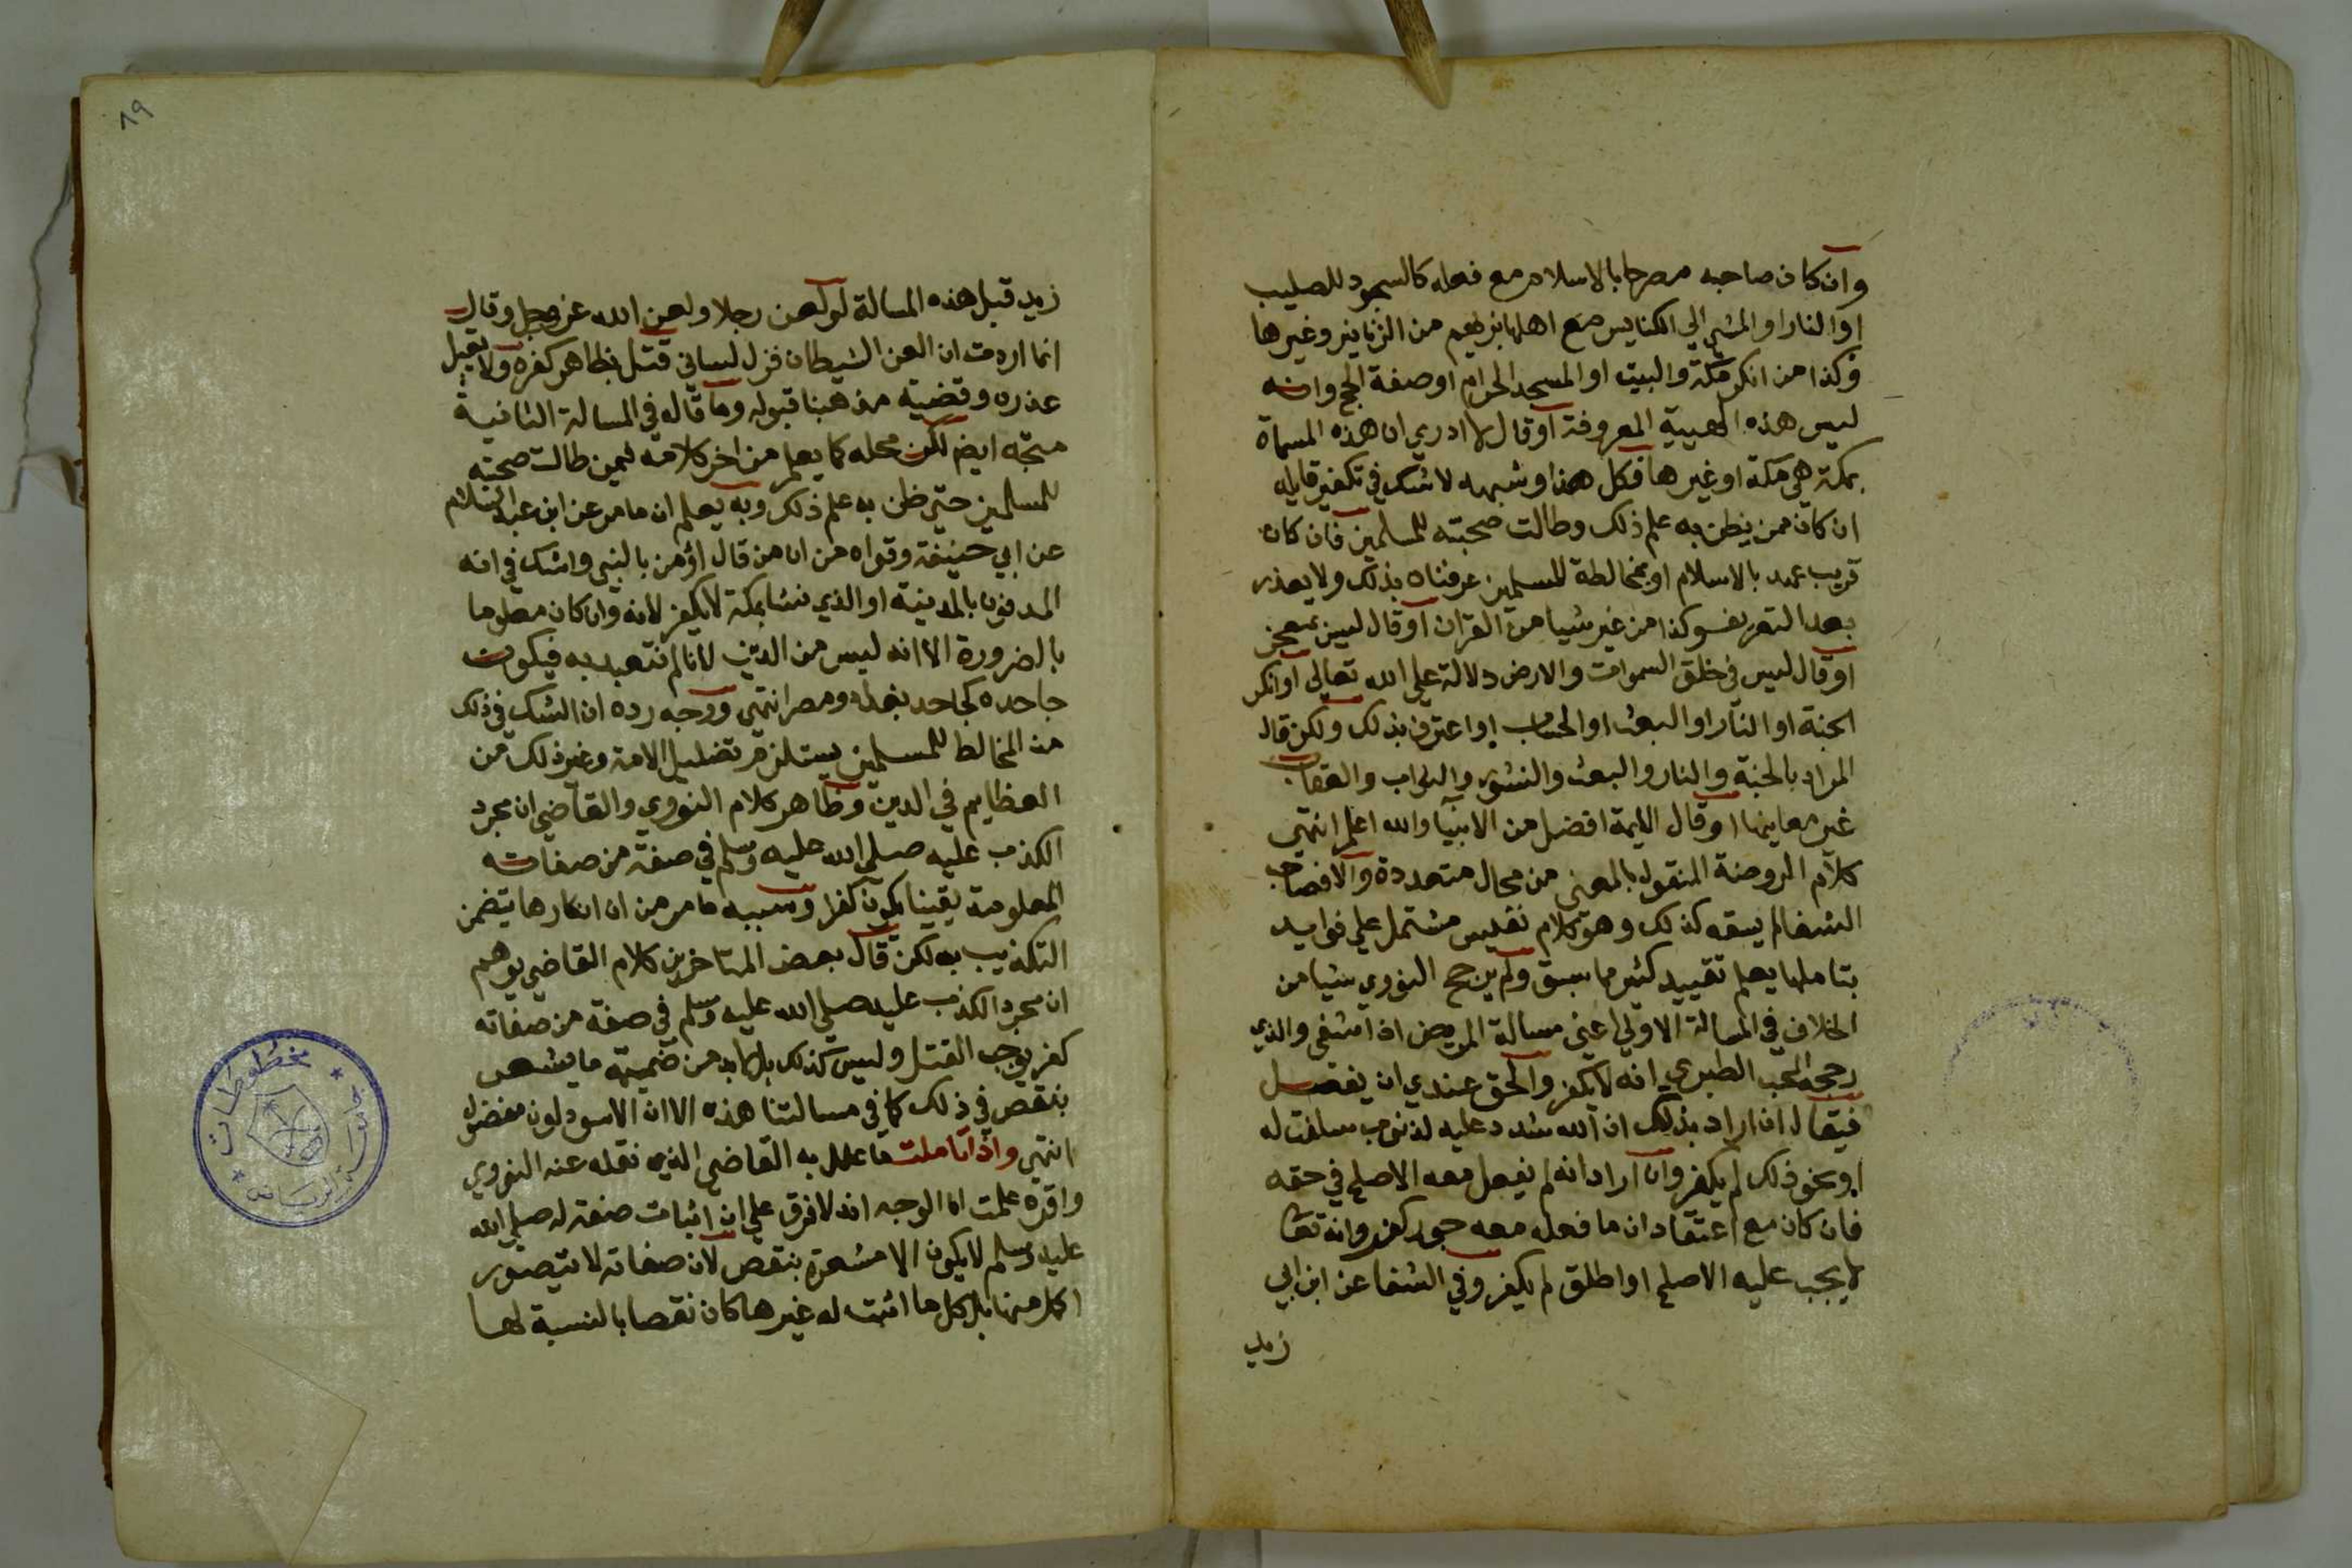 وان كان صاحبه مصرحا بالاسلام مع فعله كالسجود للصليب
او النار او المشي الي الكنايس مع اهلها بزيهم من الزنانير وغيرها
وكذا من انكر مكة والبيت او المسجد الحرام او صفة الحج وانه
ليس هذه الهيية المعروفة او قال لا ادري ان هذه المسماة
بمكة هي مكة او غيرها فكل هذا وشبهه لاشك في تكفير قايله
ان كان ممن يظن به علم ذلك وطالت صحبته للمسلمين فان كان
قريب عهد بالاسلام او بمخالطة المسلمين عرفناه بذلك ولا يعذر
بعد التعريف وكذا من غير شيا من القران او قال ليس بمعجز
او قال ليس في خلق السموات والارض دلالة علي الله تعالي او انكر
الجنة او النار او البعث او الحساب او اعترف بذلك ولكن قال
المراد بالجنة والنار والبعث والنشور والثواب والعقاب
غير معانيها او قال الايمة افضل من الانبيا والله اعلم انتهي
كلام الروضة المنقول بالمعني من محال متعددة والا فصاحب
الشفا لم يسقه كذلك وهو كلام نفيس مشتمل علي فوايد
بتاملها يعلم تقييد كثير مما سبق ولم يرجح النووي شيا من
الخلاف في المسالة الاولي اعني مسالة المريض اذا شفي والذي
رجحه المحب الطبري انه لا يكفر والحق عندي ان يفصل
فيقال ان اراد بذلك ان الله شدد عليه لذنوب سلفت له
او نحو ذلك لم يكفر وان اراد انه لم يفعل معه الاصلح في حقه
فان كان مع اعتقاد ان ما فعله معه جور كفر وانه تعا
لا يجب عليه الاصلح او اطلق لم يكفر وفي الشفا عن ابن ابي
زيد
٨٩
زيد قبل هذه المسالة لو لعن رجلا ولعن الله عز وجل وقال
انما اردت ان العن الشيطان فزل لساني قتل بظاهر كفره ولا يقبل
عذره وقضية مذهبنا قبوله وما قاله في المسالة الثانية
متجه ايضا لكن محله كما يعلم من اخر كلامه فيمن طالت صحبته
للمسلمين حتي ظن به علم ذلك وبه يعلم ان ما مر عن ابن عبد السلام
عن ابي حنيفة وقواه من ان من قال اؤمن بالنبي واشك في انه
المدفون بالمدينة او الذي نشا بمكة لا يكفر لانه وان كان معلوما
بالضرورة الا انه ليس من الدين لانا لم نتعبد به فيكون
جاحده كجاحد بغداد ومصر انتهي ووجه رده ان الشك في ذلك
من المخالط للمسلمين يستلزم تضليل الامة وغير ذلك من
العظايم في الدين وظاهر كلام النووي والقاضي ان مجرد
الكذب عليه صلي الله عليه وسلم في صفة من صفاته
المعلومة يقينا يكون كفرا وسببه ما مر من ان انكارها يتضمن
التكذيب به لكن قال بعض المتاخرين كلام القاضي يوهم
ان مجرد الكذب عليه صلي الله عليه وسلم في صفة من صفاته
كفر يوجب القتل وليس كذلك بل لابد من ضميمة ما يشعر
بنقص في ذلك كما في مسالتنا هذه الا ان الاسود لون مفضول
انتهي واذا تاملت ما علل به القاضي الذي نقله عنه النووي
واقره علمت ان الوجه انه لا فرق علي ان اثبات صفة له صلي الله
عليه وسلم لا يكون الا مشعرة بنقص لان صفاته لا يتصور
اكمل منها بل كل ما اثبت له غيرها كان نقصا بالنسبة لها
مخطوطات
جامعة الرياض